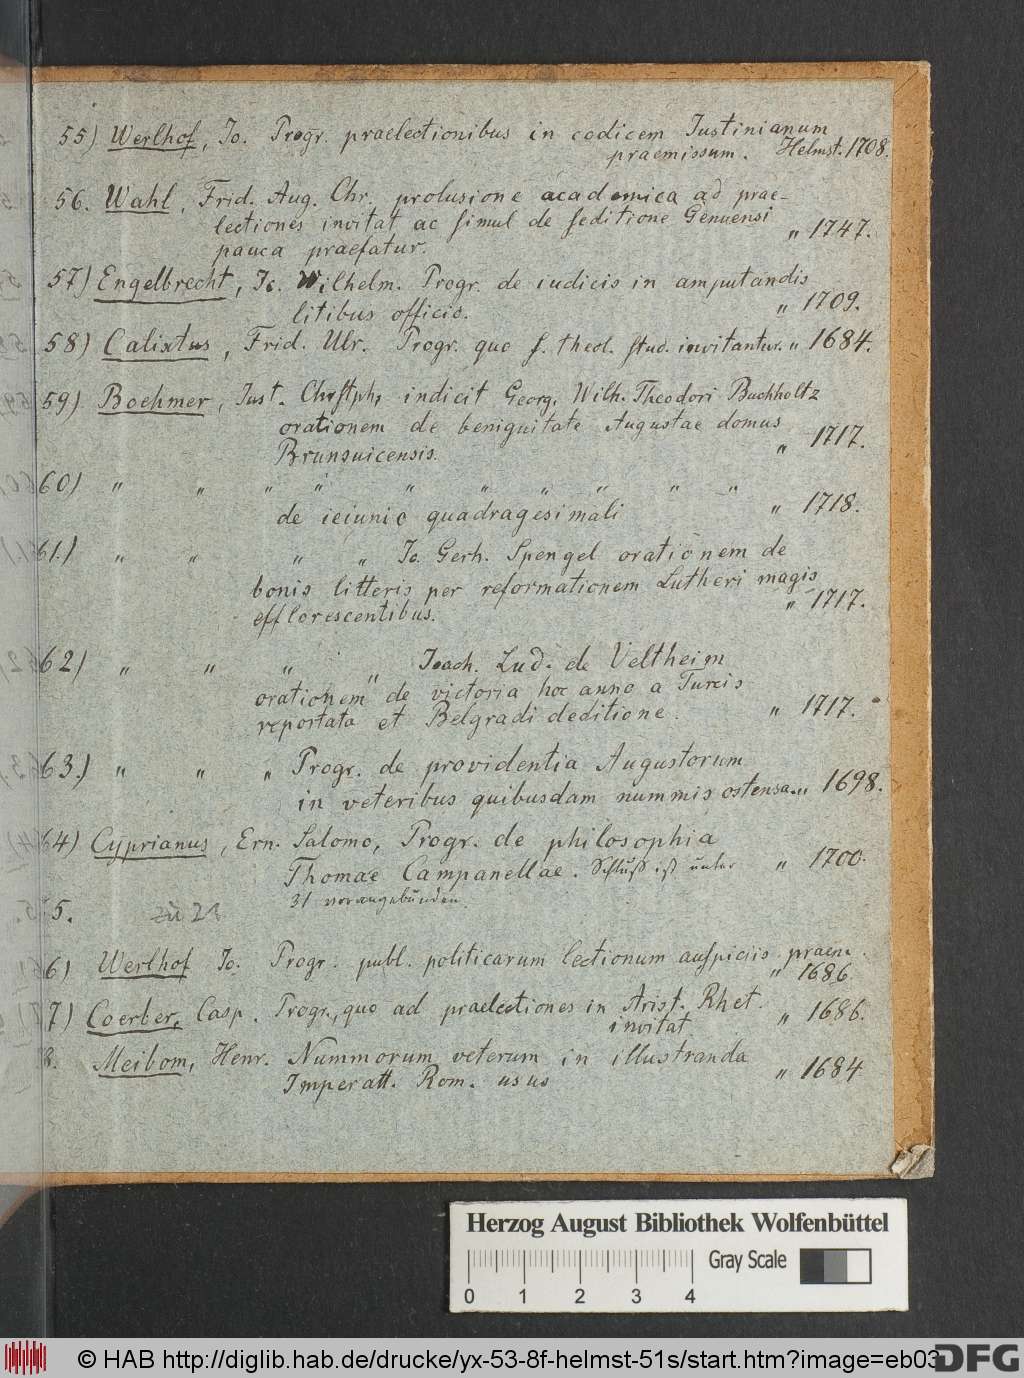 55) Werlhof, Io. Progr. praelectionibus in codicem Iustinianum
praemissum. Helmst. 1708.
56. Wahl, Frid. Aug. Chr. prolusione academica ad prae-
lectiones invitat ac simul de seditione Genuensi
pauca praefatur. " 1747.
57) Engelbrecht, Io. Wilhelm. Progr. de iudicis in amputandis
litibus officio. " 1709.
58) Calixtus, Frid. Ulr. Progr. quo s. theol. stud. invitantur. " 1684.
59) Boehmer, Iust. Chrstph, indicit Georg. Wilh. Theodori Buchholtz
orationem de benignitate Augustae domus
Brunsuicensis. " 1717.
60) " " " " " " " " " "
de ieiunio quadragesimali " 1718.
61.) " " " " Io. Gerh. Spengel orationem de
bonis litteris per reformationem Lutheri magis
efflorescentibus. " 1717.
62) " " " " Ioach. Lud. de Veltheim
orationem de victoria hoc anno a Turcis
reportata et Belgradi deditione. " 1717.
63.) " " " Progr. de providentia Augustorum
in veteribus quibusdam nummis ostensa. " 1698.
64) Cyprianus, Ern. Salomo, Progr. de philosophia
Thomae Campanellae. Schluß ist unter " 1700.
31 vorangebunden.
5. zu 23
6) Werlhof Io. Progr. publ. politicarum lectionum auspiciis praem.
" 1686.
7) Coerber, Casp. Progr., quo ad praelectiones in Arist. Rhet.
invitat " 1686.
8. Meibom, Henr. Nummorum veterum in illustranda
Imperatt. Rom. usus " 1684
Herzog August Bibliothek Wolfenbüttel
Gray Scale
0 1 2 3 4
© HAB http://diglib.hab.de/drucke/yx-53-8f-helmst-51s/start.htm?image=eb03
DFG